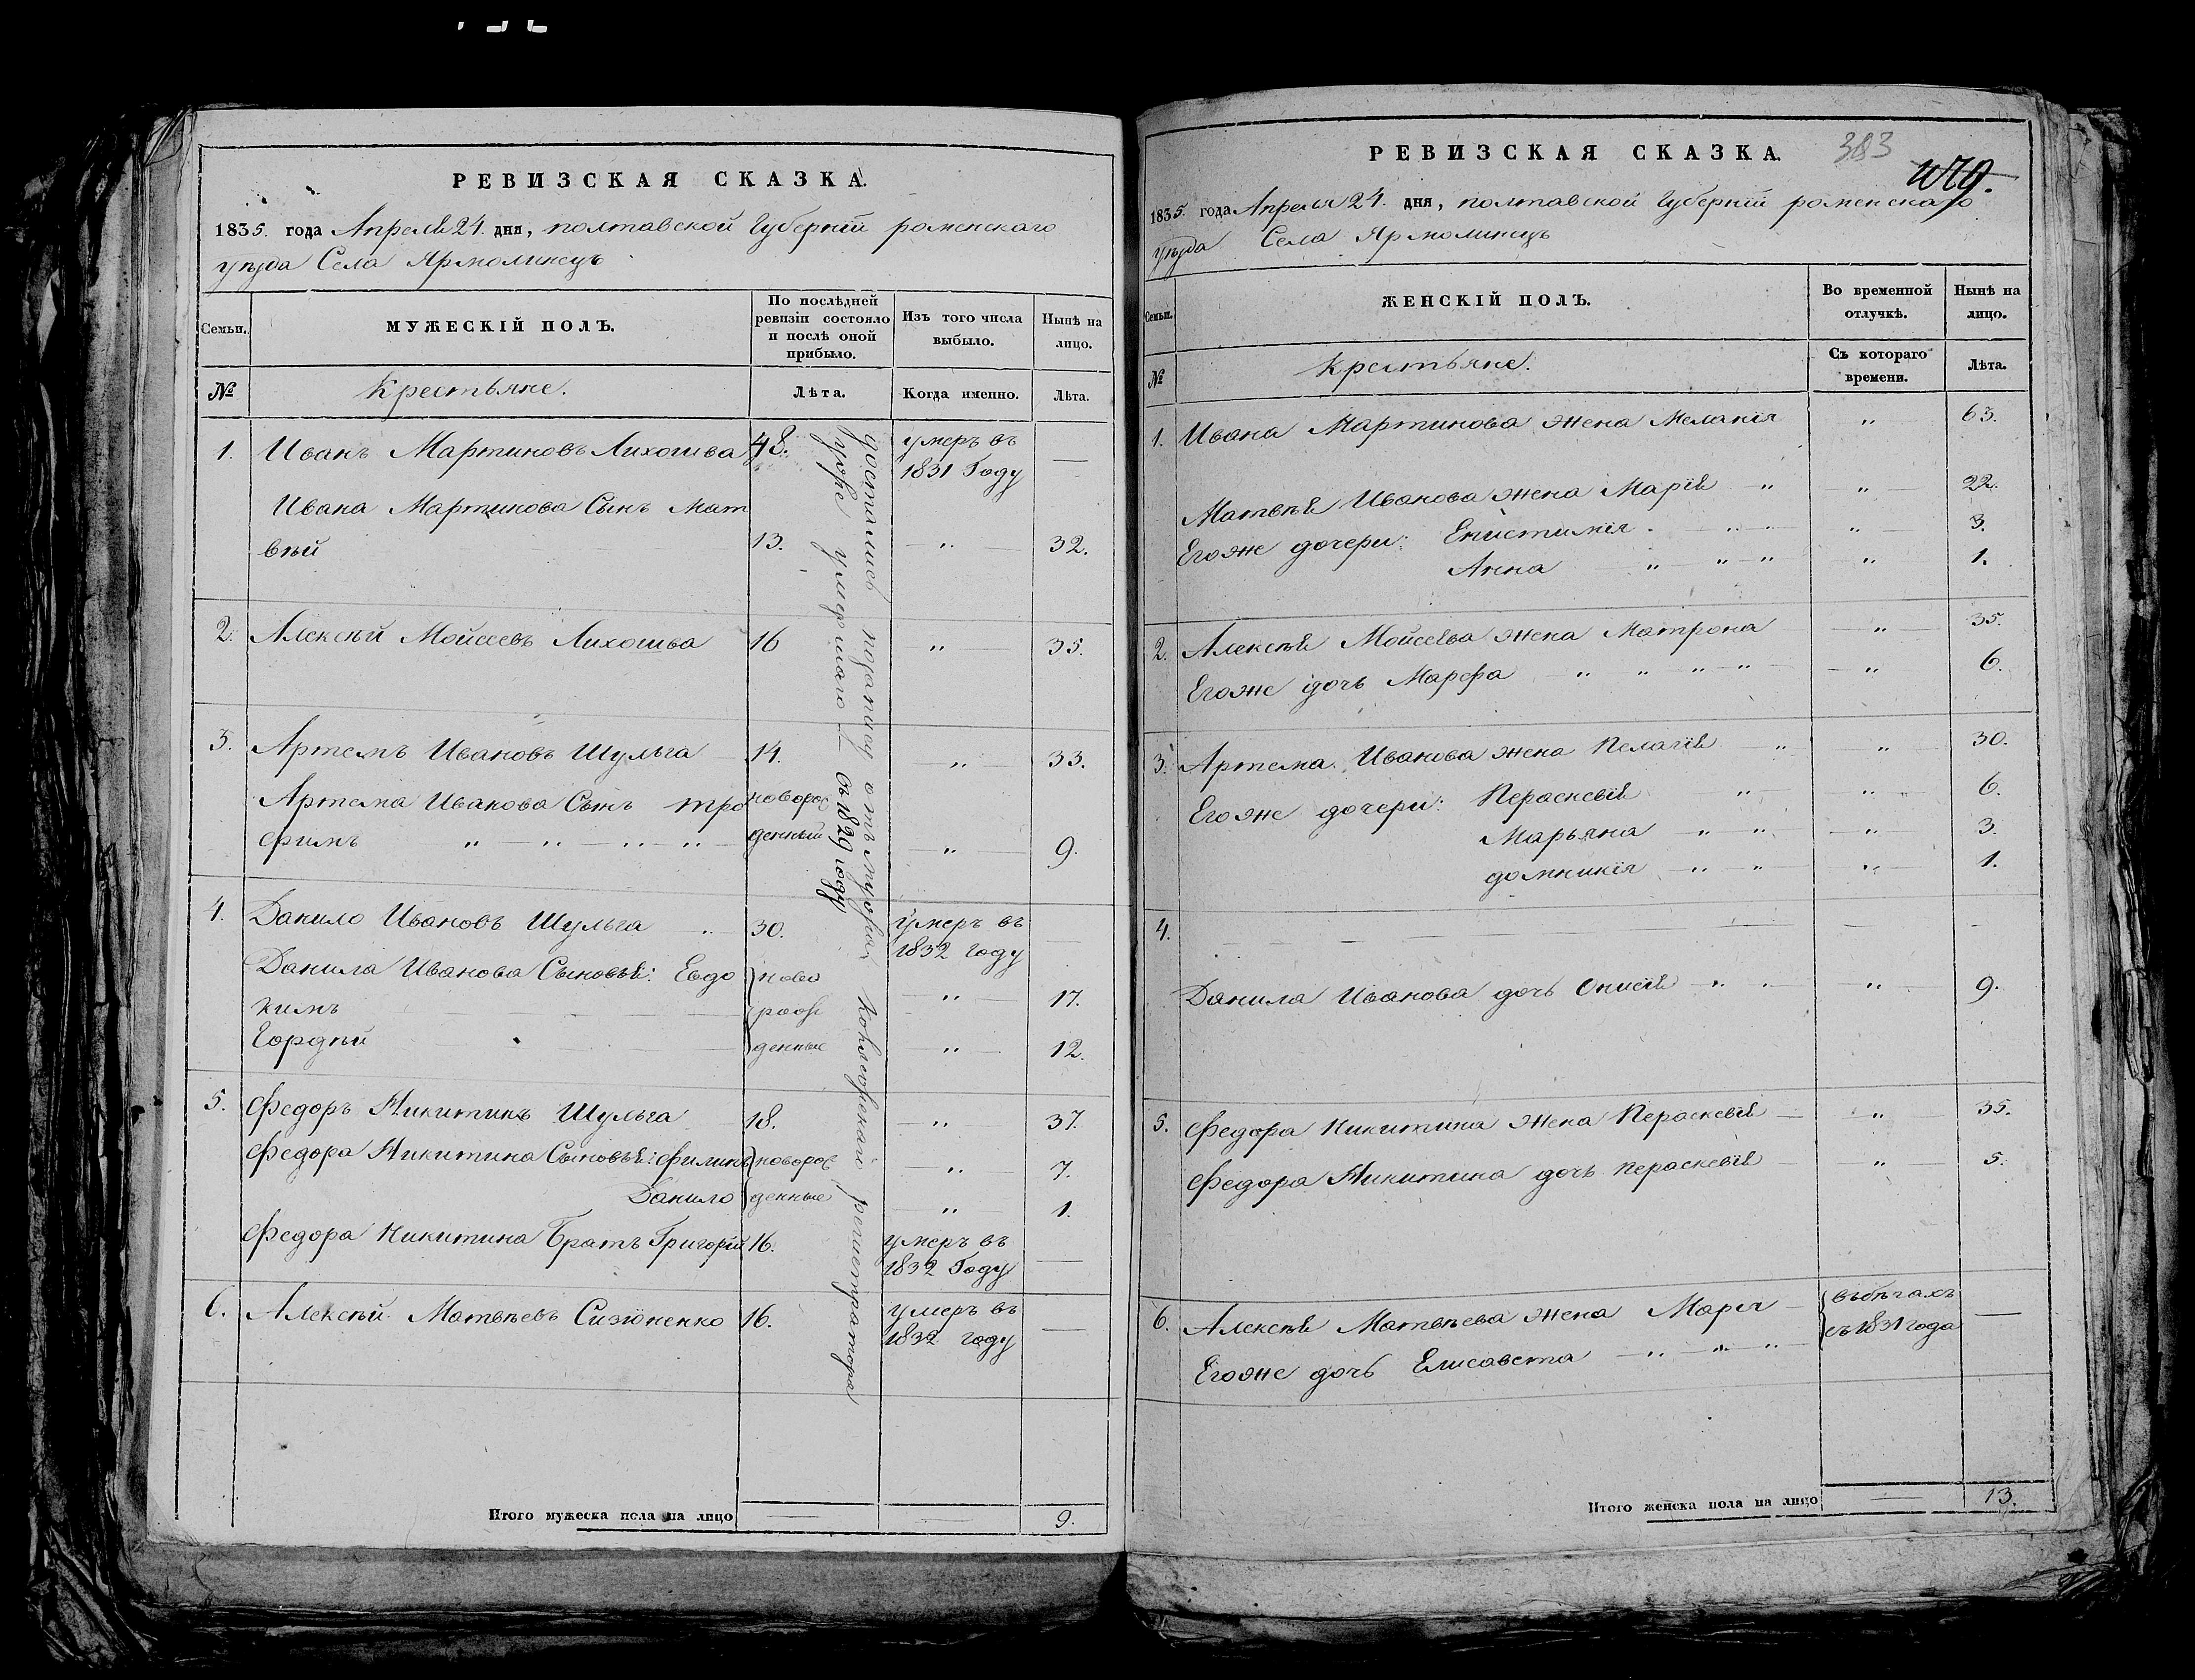 РЕВИЗСКАЯ СКАЗКА.
1835. года Апреля 24. дня, полтавской Губернїи роменскаго
уѣзда Села Ярмолинецъ
Семьи.
МУЖЕСКІЙ ПОЛЪ.
По послѣдней ревизіи состояло и послѣ оной прибыло.
Изъ того числа выбыло.
Нынѣ на лицо.
№
Крестьяне.
Лѣта.
Когда именно.
Лѣта.
1. Иванъ Мартиновъ Лихошва 48. умеръ въ 1831 Году —
Ивана Мартинова Сынъ Мат
вѣй 13. „ 32.
2. Алексѣй Мойсеевъ Лихошва 16 „ 35.
3. Артемъ Ивановъ Шульга 14. „ 33.
Артема Иванова Сынъ тро новорож
фимъ „ „ „ „ денный „ 9.
4. Данило Ивановъ Шульга „ 30. умеръ въ 1832 Году —
Данила Иванова Сыновья: Евдо ново
кимъ рож „ 17.
Гордѣй денные „ 12.
5. Федоръ Никитинъ Шульга 18. „ 37.
Федора Никитина Сыновья: Филипъ новорож „ 7.
Данило денные „ 1.
Федора Никитина Братъ Григорїй 16. умеръ въ 1832 Году —
6. Алексѣй Матвѣевъ Сизюненко 16. умеръ въ 1832 году —
достались отъ коллежскаго регистратора
съ 1829 году
Итого мужеска пола на лицо — — 9.
РЕВИЗСКАЯ СКАЗКА.
383
1835. года Апреля 24. дня, полтавской Губернїи роменскаго
уѣзда Села Ярмолинецъ
Семьи.
ЖЕНСКІЙ ПОЛЪ.
Во временной отлучкѣ.
Нынѣ на лицо.
№
Крестьяне.
Съ котораго времени.
Лѣта.
1. Ивана Мартинова жена Меланїя „ 63.
Матвѣя Иванова жена Марїя „ „ 22.
Егоже дочери: Епистимїя „ „ „ 3.
Анна „ „ „ „ 1.
2. Алексѣя Мойсеева жена Матрона „ 35.
Егоже дочь Марфа „ „ „ „ „ 6.
3. Артема Иванова жена Пелагїя „ „ 30.
Егоже дочери: Пераскевїя „ „ „ 6.
Марьяна „ „ „ 3.
домникїя „ „ „ 1.
4. — — — —
Данила Иванова дочь Онисїя „ „ „ 9.
5. Федора Никитина жена Пераскевїя — „ 35.
Федора Никитина дочь Пераскевїя — „ 5.
6. Алексѣя Матвѣева жена Марїя въ бѣгахъ —
Егоже дочь Елисавета „ „ „ съ 1831 года
Итого женска пола на лицо — 13.